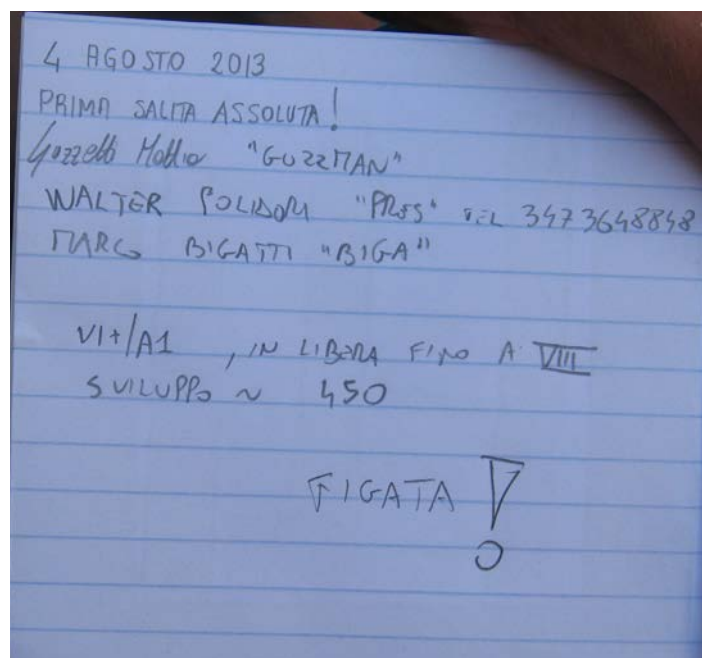 4 AGOSTO 2013
PRIMA SALITA ASSOLUTA!
Guzzetti Mattia "GUZZMAN"
WALTER POLIDORI "PRES" TEL 3473648848
MARCO BIGATTI "BIGA"
VI+/A1, IN LIBERA FINO A VIII
SVILUPPO ~ 450
FIGATA!